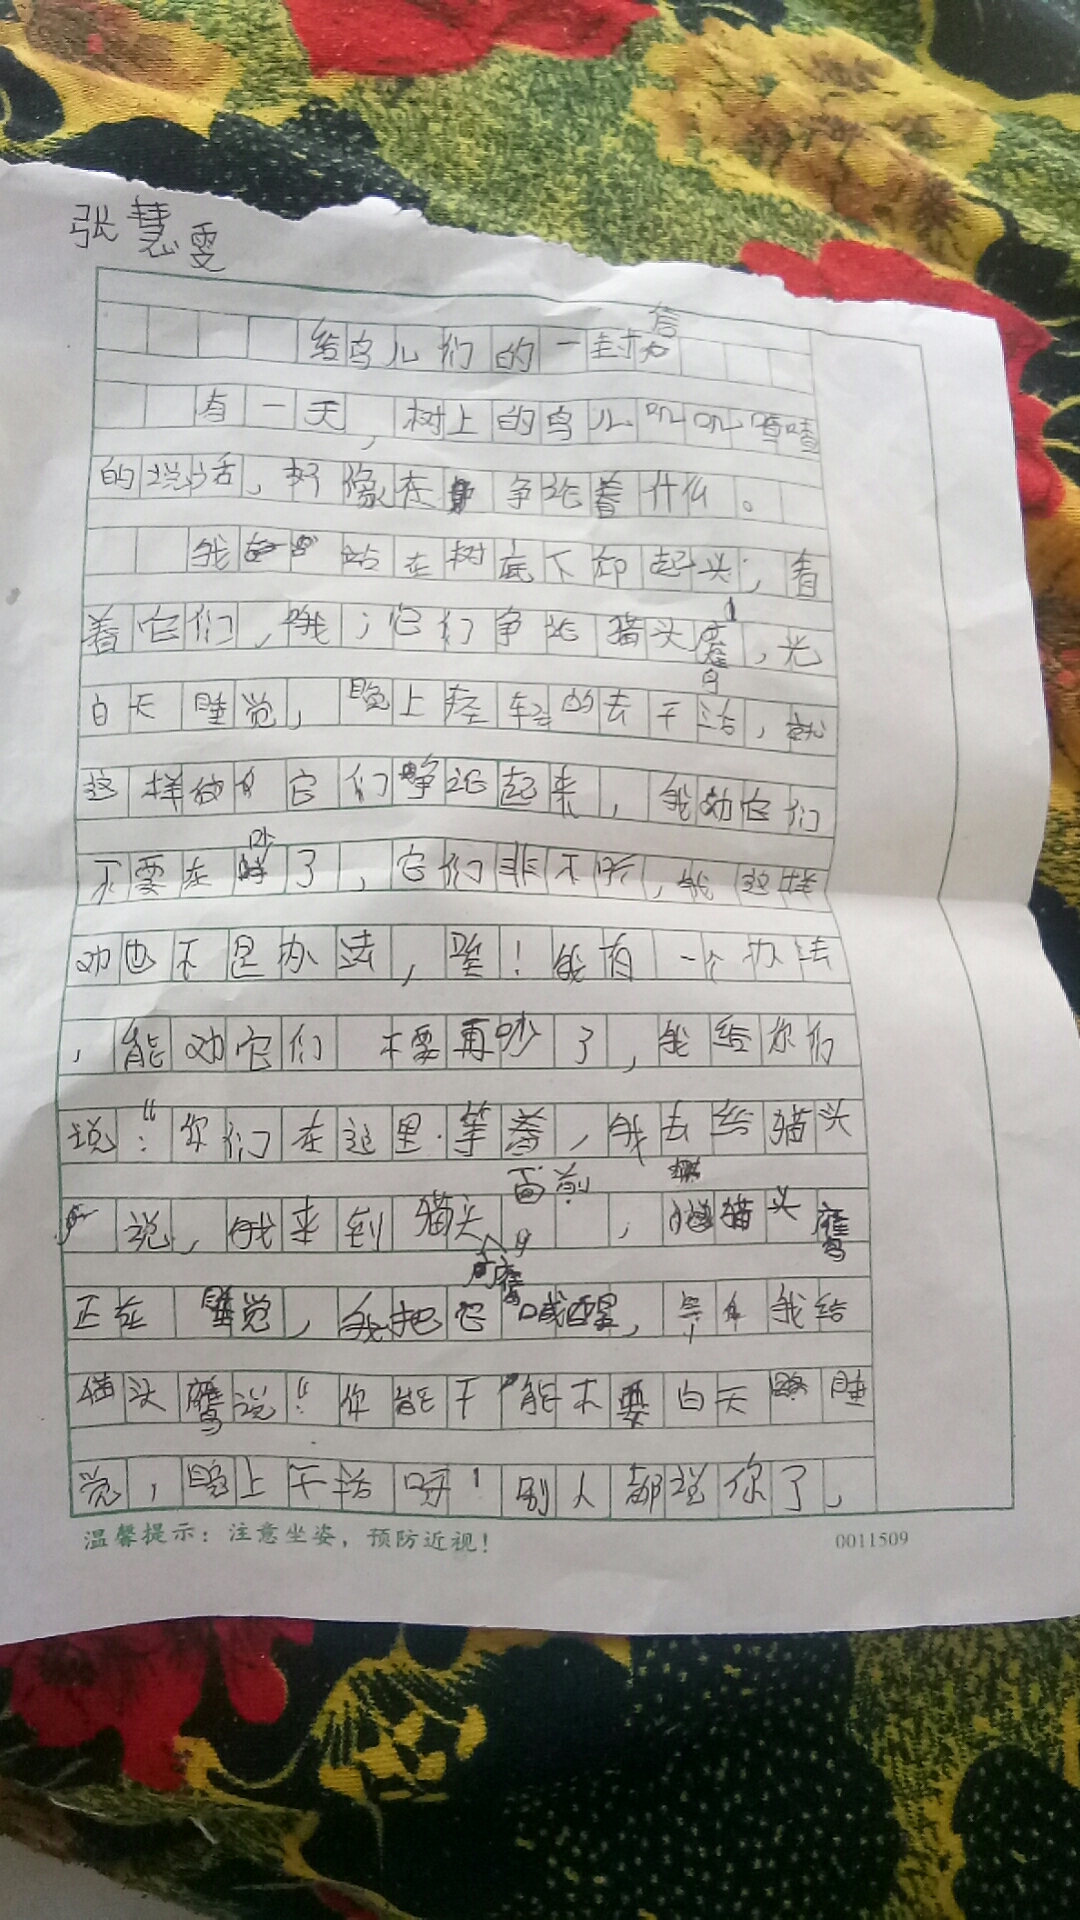 张慧雯
给鸟儿们的一封信
有一天，树上的鸟儿叽叽喳喳
的说话，好像在争论着什么。
我站在树底下却起头，看
着它们，哦；它们争论猫头鹰，光
白天睡觉，晚上轻轻的去干活，就
这样的它们争论起来，我劝它们
不要在吵了，它们非不听，我这样
劝也不是办法，唉！我有一个办法
，能劝它们不要再吵了，我给你们
说：“你们在这里等着，我去给猫头
说，我来到猫头鹰面前，猫头鹰
正在睡觉，我把它喊醒，我给
猫头鹰说：“你能不要白天睡
觉，晚上干活呀！别人都说你了，
温馨提示：注意坐姿，预防近视！
0011509